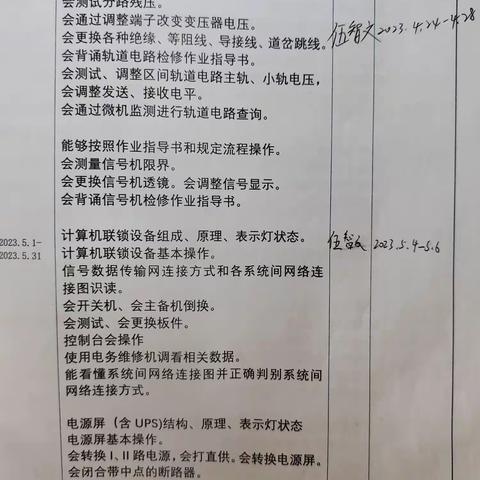 会测试分路残压。
会通过调整端子改变变压器电压。
会更换各种绝缘、等阻线、导接线、道岔跳线。
伍智文 2023.4.24-4.28
会背诵轨道电路检修作业指导书。
会测试、调整区间轨道电路主轨、小轨电压，
会调整发送、接收电平。
会通过微机监测进行轨道电路查询。
能够按照作业指导书和规定流程操作。
会测量信号机限界。
会更换信号机透镜。会调整信号显示。
会背诵信号机检修作业指导书。
2023.5.1-
2023.5.31
计算机联锁设备组成、原理、表示灯状态。
伍智文 2023.5.4-5.6
计算机联锁设备基本操作。
信号数据传输网连接方式和各系统间网络连
接图识读。
会开关机、会主备机倒换。
会测试、会更换板件。
控制台会操作
使用电务维修机调看相关数据。
能看懂系统间网络连接图并正确判别系统间
网络连接方式。
电源屏（含 UPS)结构、原理、表示灯状态
电源屏基本操作。
会转换 I、II 路电源，会打直供。会转换电源屏。
会闭合带中点的断路器。